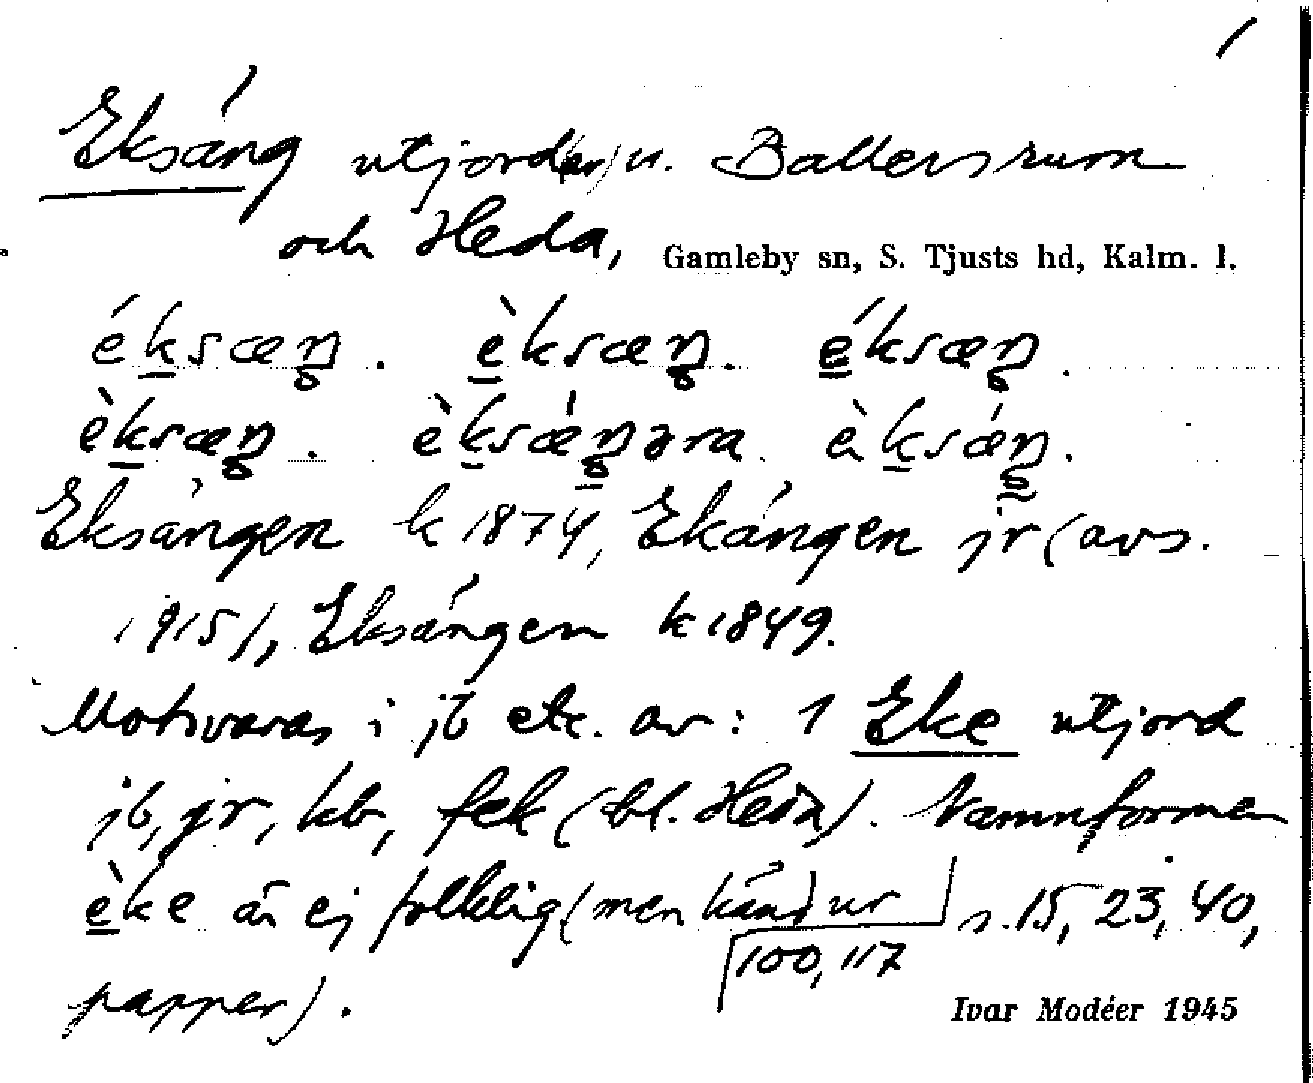 Eksäng utjord(ar) u. Ballersrum
och Heda, Gamleby sn, S. Tjusts hd, Kalm. l.
éksæŋ. èksæŋ. éksæŋ.
èksæŋ. èksæ̀ŋəra. èksǽŋ.
Eksängen k 1874, Ekängen jr (avs.
1915), Eksängen k 1849.
Motsvaras i jb etc. av: 1 Eke utjord
jb, jr, kb, fek (bl. Heda). Namnformen
èke är ej folklig (men känd ur s. 15, 23, 40,
100, 117
papper).
Ivar Modéer 1945